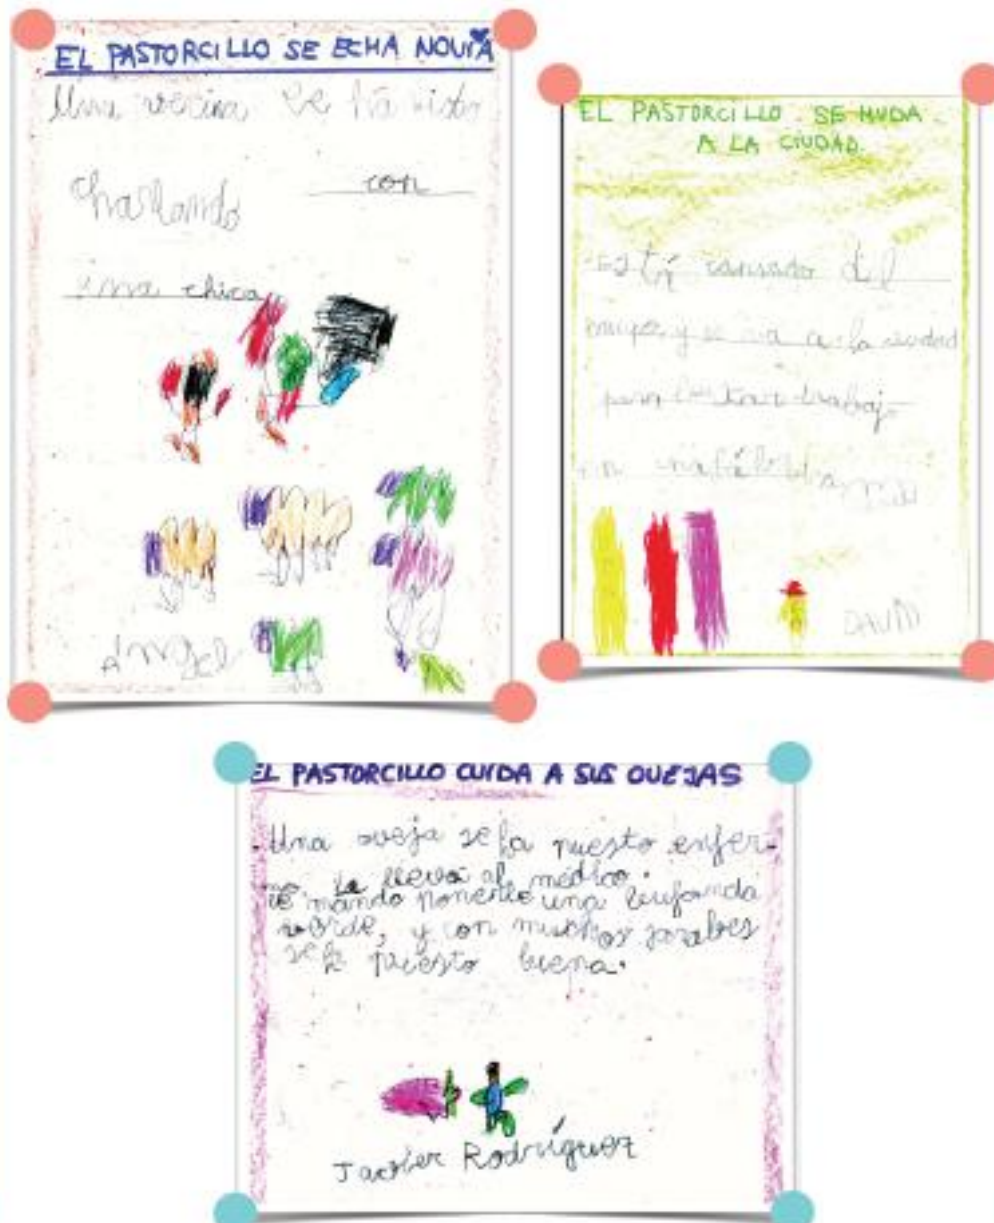 EL PASTORCILLO SE ECHA NOVIA
Una vecina le ha visto
charlando con
una chica
Ángel
EL PASTORCILLO SE MUDA
A LA CIUDAD.
Está cansado del
campo y se va a la ciudad
para buscar trabajo
en una fábrica
DAVID
EL PASTORCILLO CUIDA A SUS OVEJAS
Una oveja se ha puesto enfer-
ma, la lleva al médico.
le mando ponerle una bufanda
verde, y con muchos jarabes
se ha puesto buena.
Javier Rodríguez